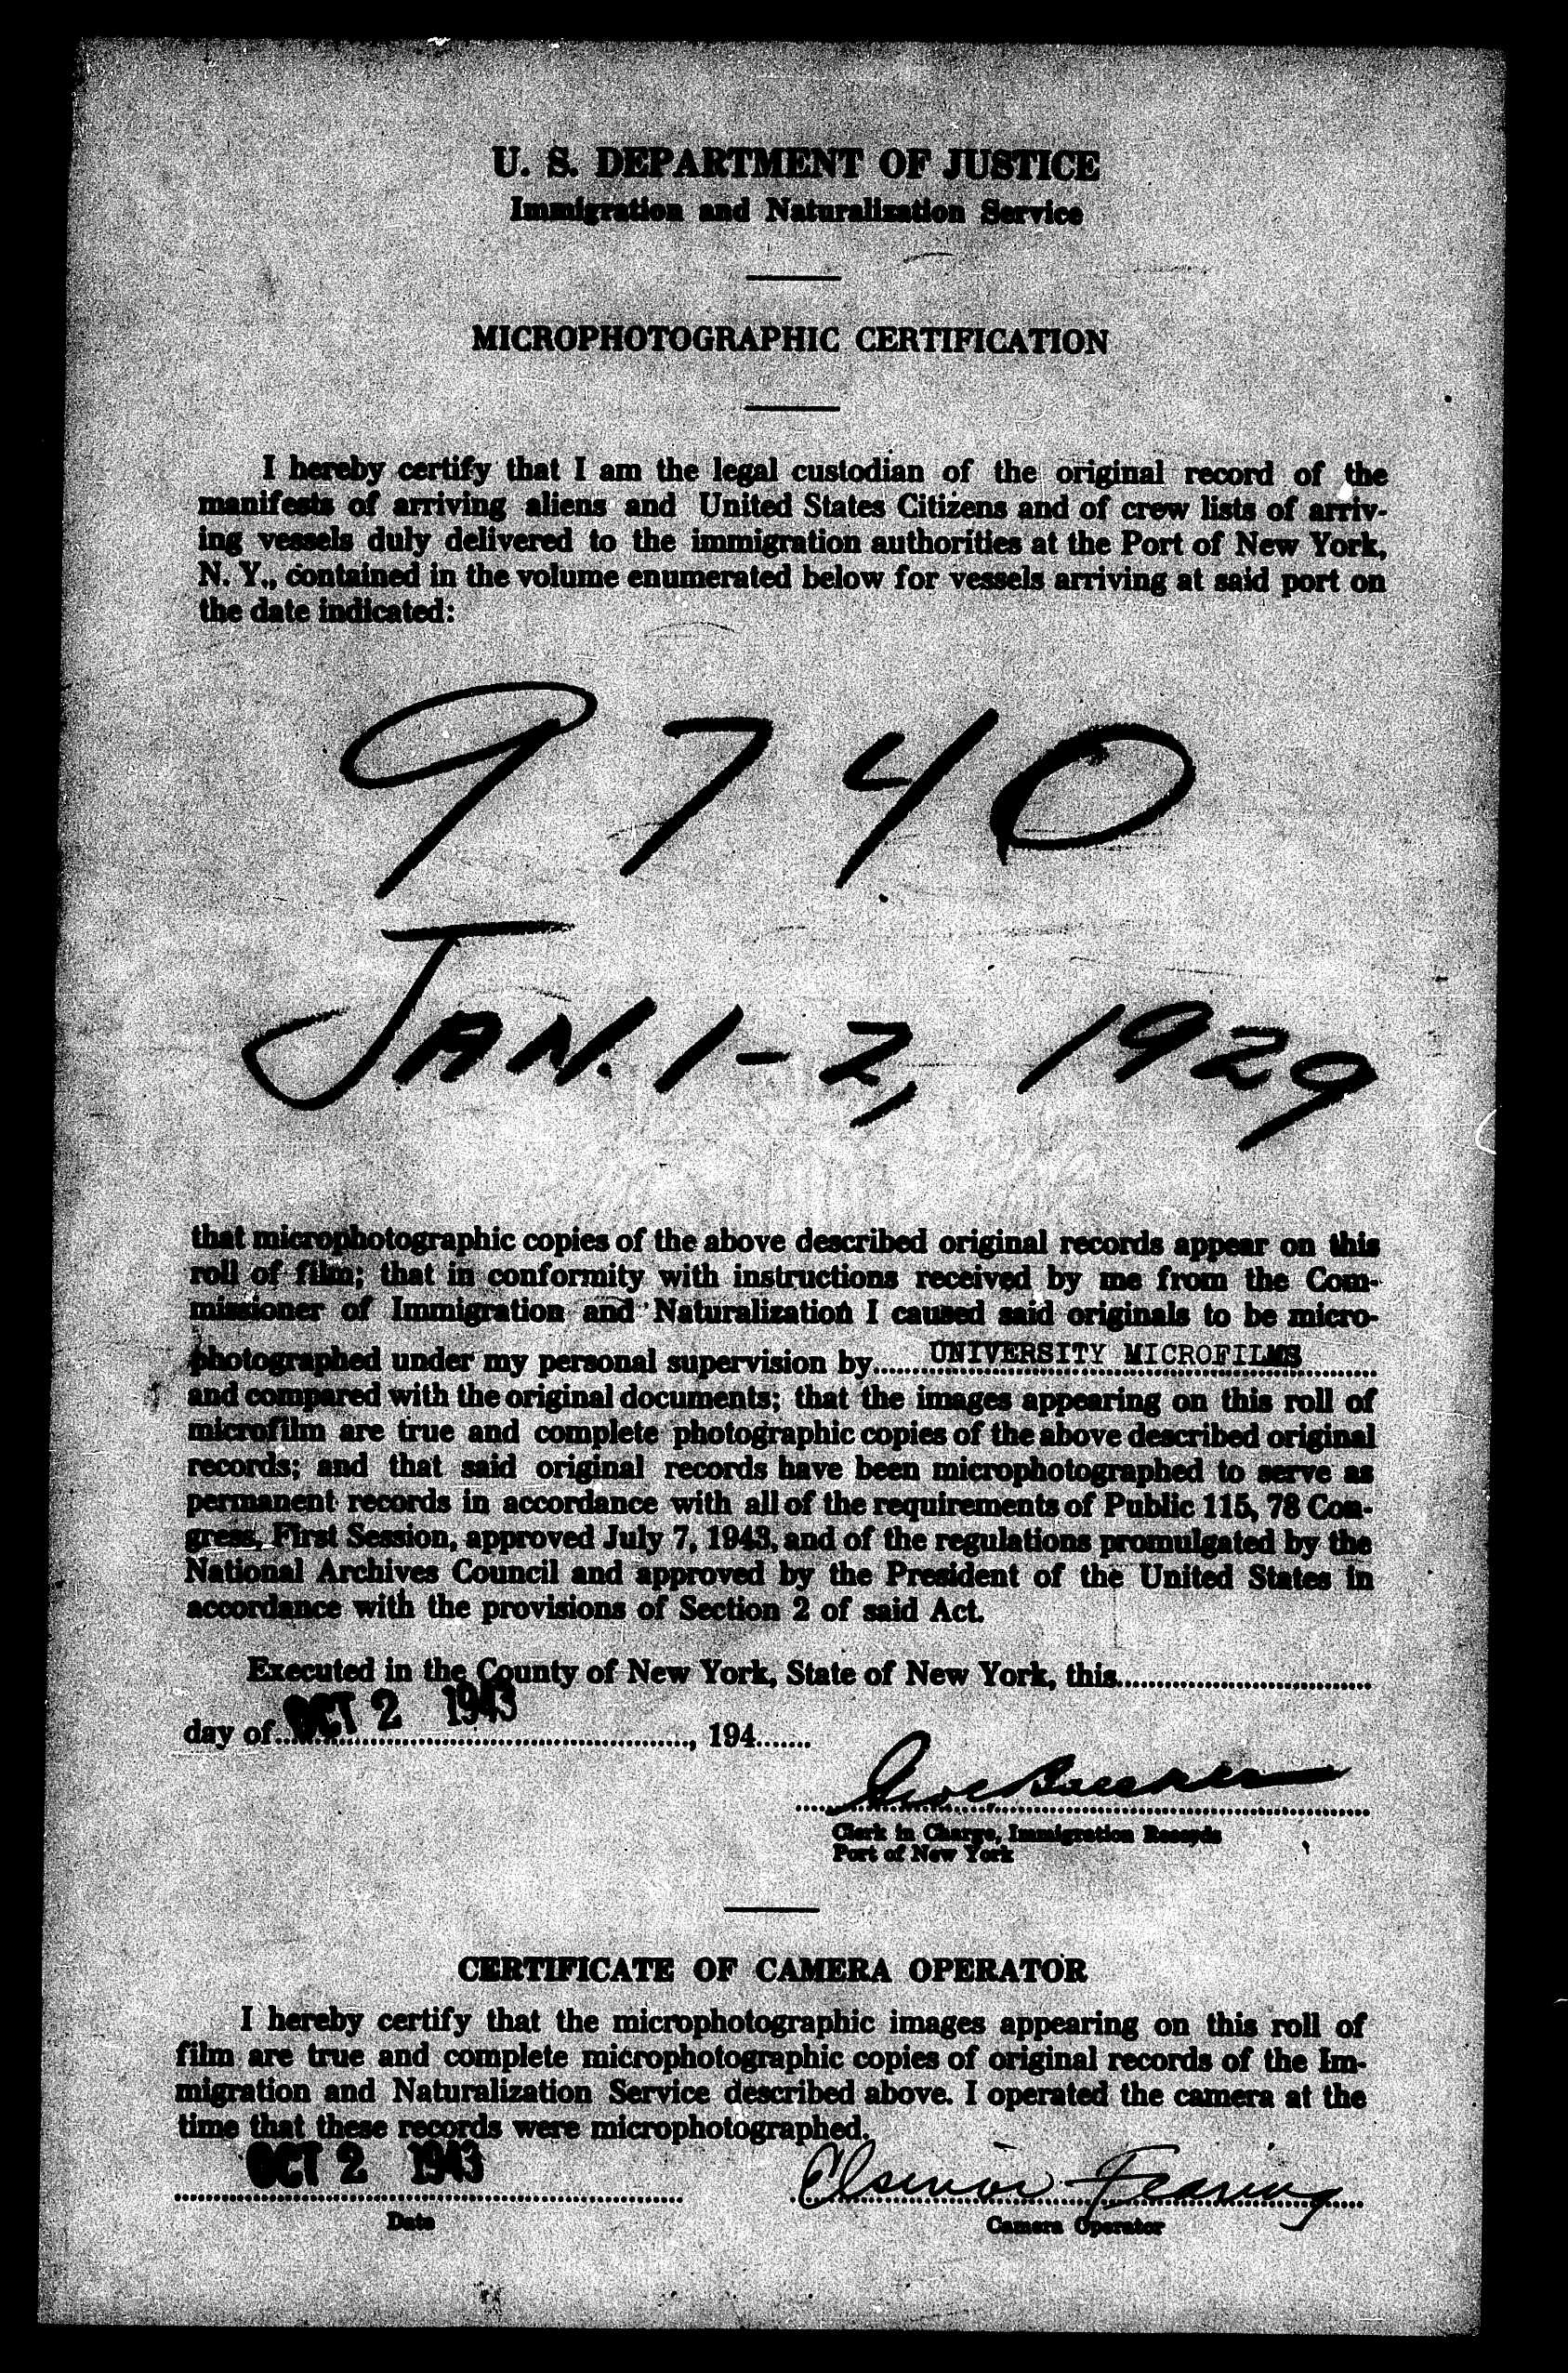 U. S. DEPARTMENT OF JUSTICE
Immigration and Naturalization Service
MICROPHOTOGRAPHIC CERTIFICATION
I hereby certify that I am the legal custodian of the original record of the
manifests of arriving aliens and United States Citizens and of crew lists of arriv-
ing vessels duly delivered to the immigration authorities at the Port of New York,
N. Y., contained in the volume enumerated below for vessels arriving at said port on
the date indicated:
9740
JAN. 1-2, 1929
that microphotographic copies of the above described original records appear on this
roll of film; that in conformity with instructions received by me from the Com-
missioner of Immigration and Naturalization I caused said originals to be micro-
photographed under my personal supervision by UNIVERSITY MICROFILMS
and compared with the original documents; that the images appearing on this roll of
microfilm are true and complete photographic copies of the above described original
records; and that said original records have been microphotographed to serve as
permanent records in accordance with all of the requirements of Public 115, 78 Con-
gress, First Session, approved July 7, 1943, and of the regulations promulgated by the
National Archives Council and approved by the President of the United States in
accordance with the provisions of Section 2 of said Act.
Executed in the County of New York, State of New York, this
day of OCT 2 1943, 194
Clerk in Charge, Immigration Records
Port of New York
CERTIFICATE OF CAMERA OPERATOR
I hereby certify that the microphotographic images appearing on this roll of
film are true and complete microphotographic copies of original records of the Im-
migration and Naturalization Service described above. I operated the camera at the
time that these records were microphotographed.
OCT 2 1943
Fearing
Date
Camera Operator